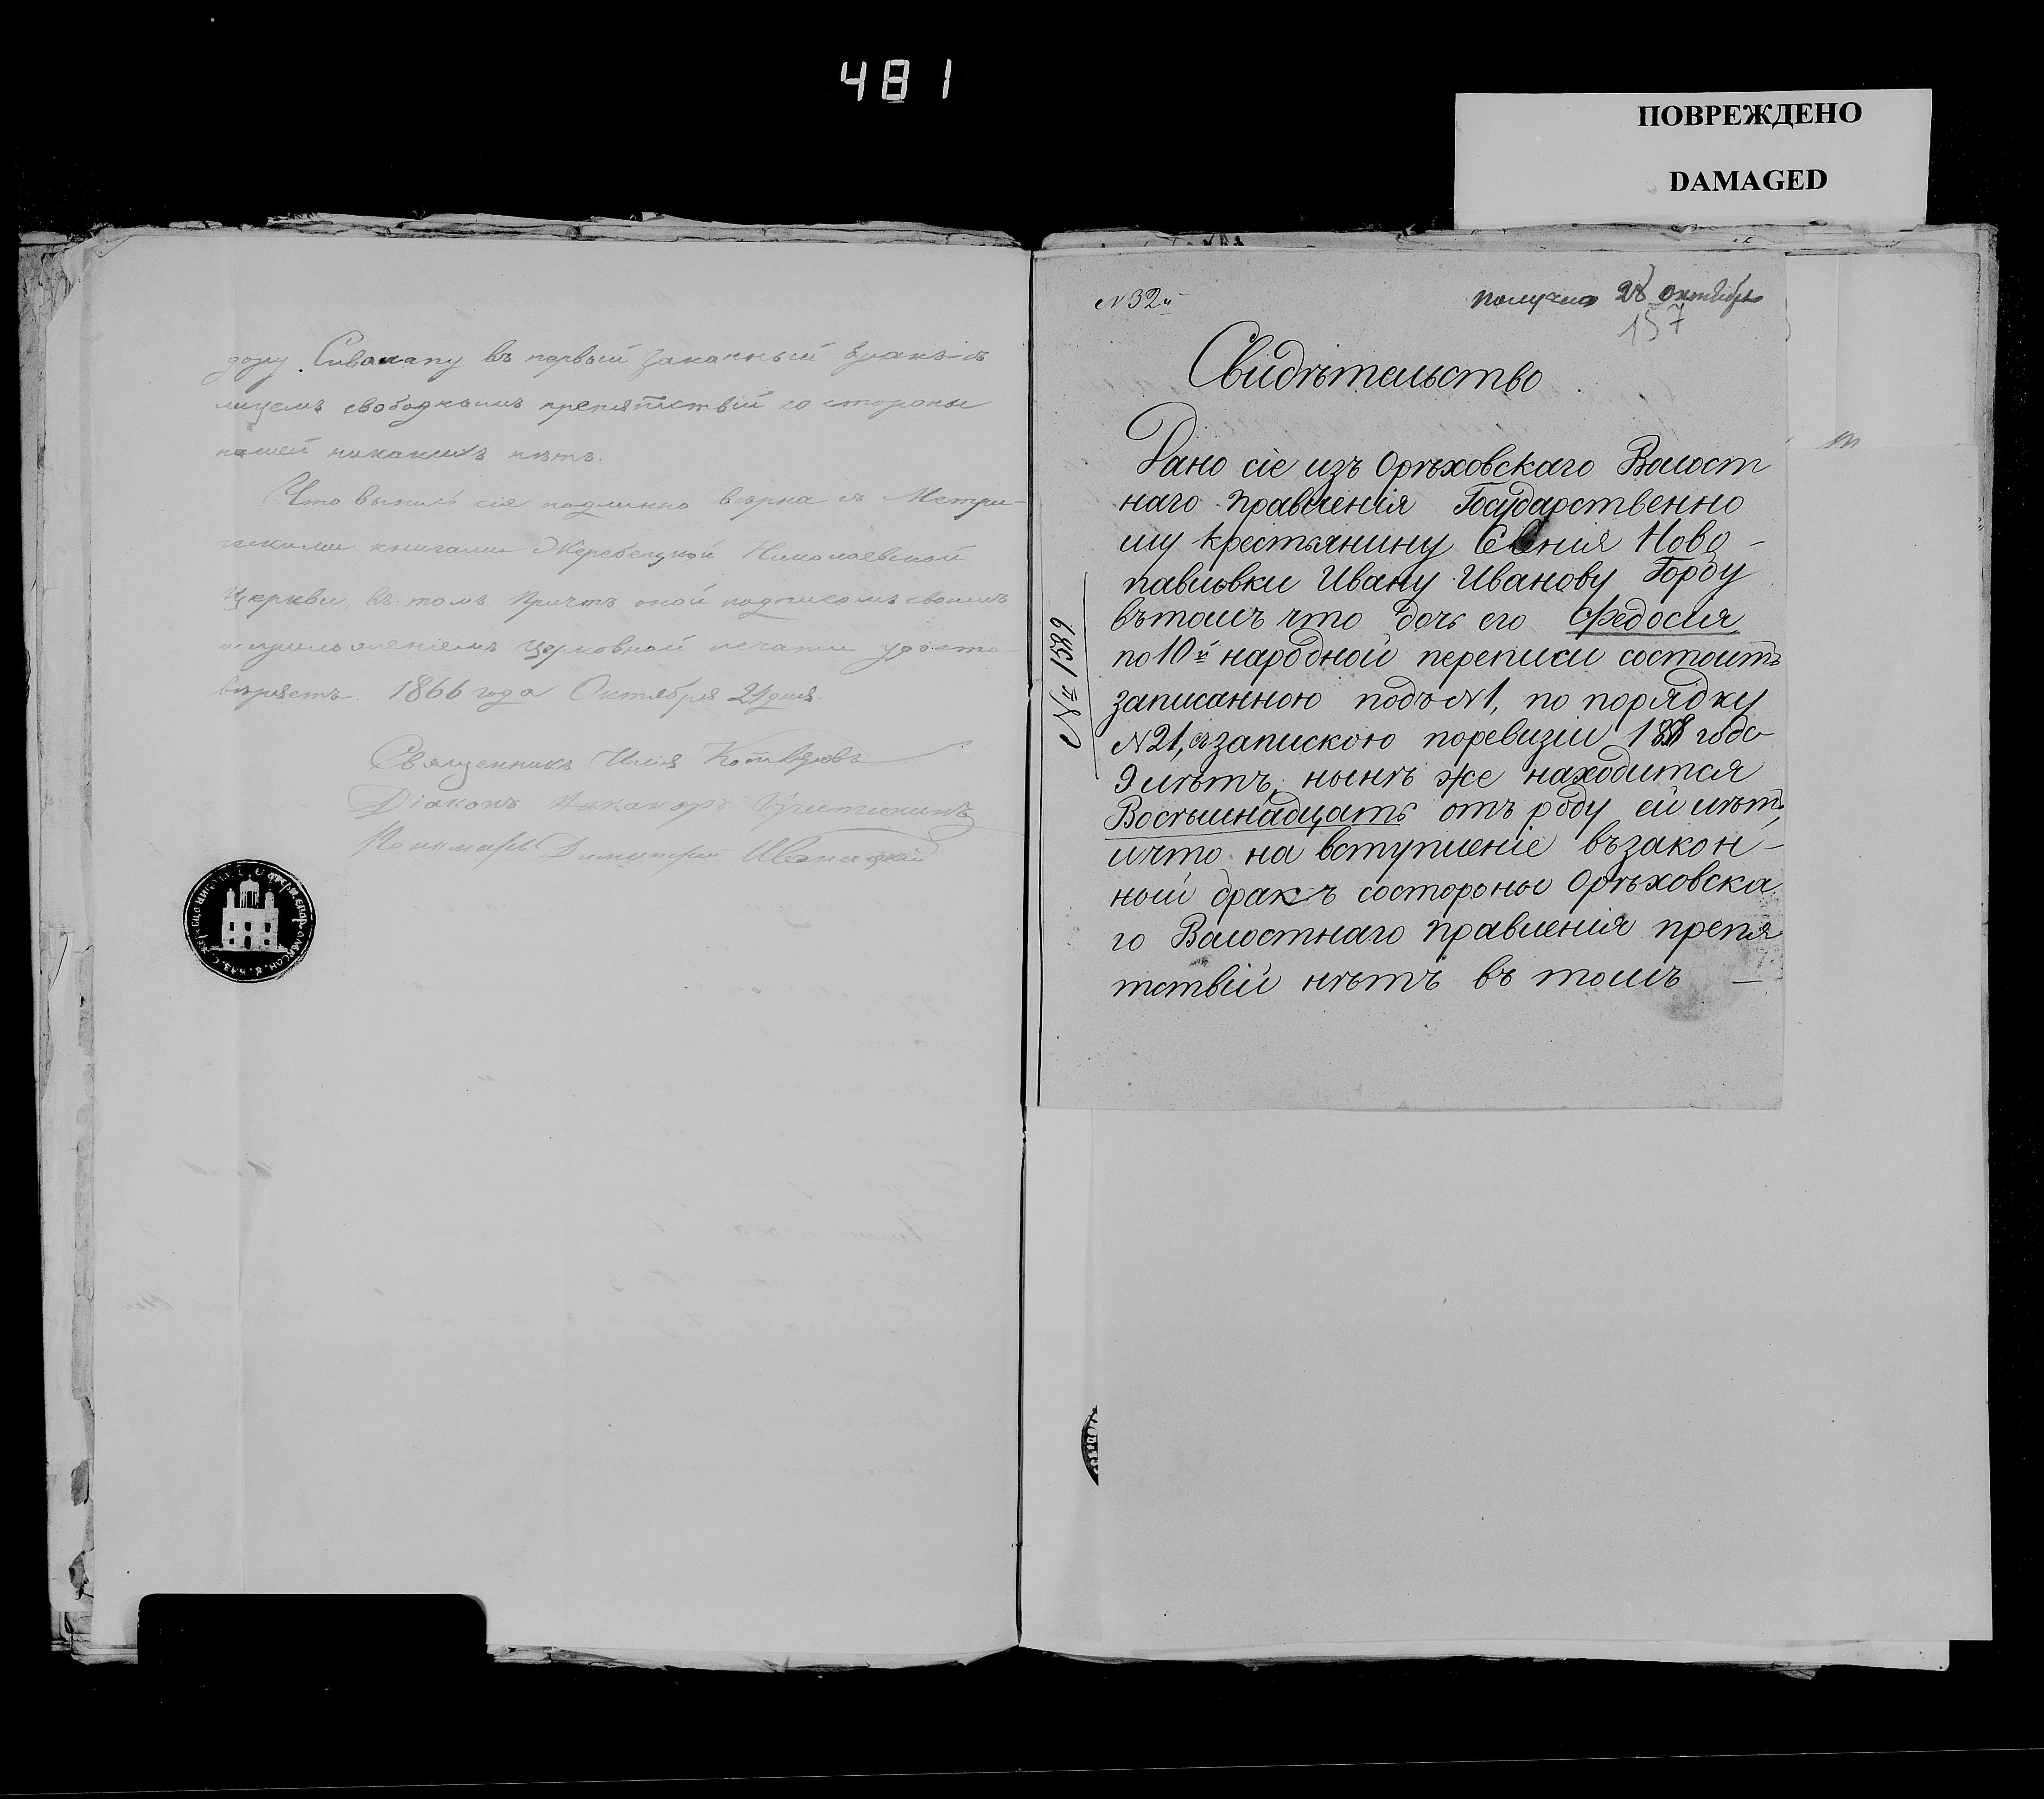 481
ПОВРЕЖДЕНО
DAMAGED
дому Сиволапу въ первый законный бракъ съ
лицемъ свободнымъ препятствій со стороны
нашей никакихъ нѣтъ.
Что выпись сія подлинно вѣрна съ Метри-
ческими книгами Жеребецкой Николаевской
Церкви, въ томъ Причтъ оной подписомъ своимъ
и приложеніемъ церковной печати удосто-
вѣряетъ. 1866 года Октября 24 дня.
Священникъ Илія
Діаконъ Никаноръ
Пономарь Димитрій
N 32й
получено 28 октября
157
Свидѣтельство
Дано сіе изъ Орѣховскаго Волост
наго Правленія Государственно
му крестьянину Селенія Ново-
павловки Ивану Иванову Горбу
въ томъ что дочь его Федосия
по 10й народной переписи состоитъ
записанною подъ N1, по порядку
N21, съ запискою по ревизіи 1858 года
9 лѣтъ, нынѣ же находится
Восѣмнадцать отъ роду ей лѣтъ,
и что на вступленіе въ закон-
ный бракъ со стороны Орѣховска
го Волостнаго Правленія препя
тствій нѣтъ въ томъ —
№ 1589